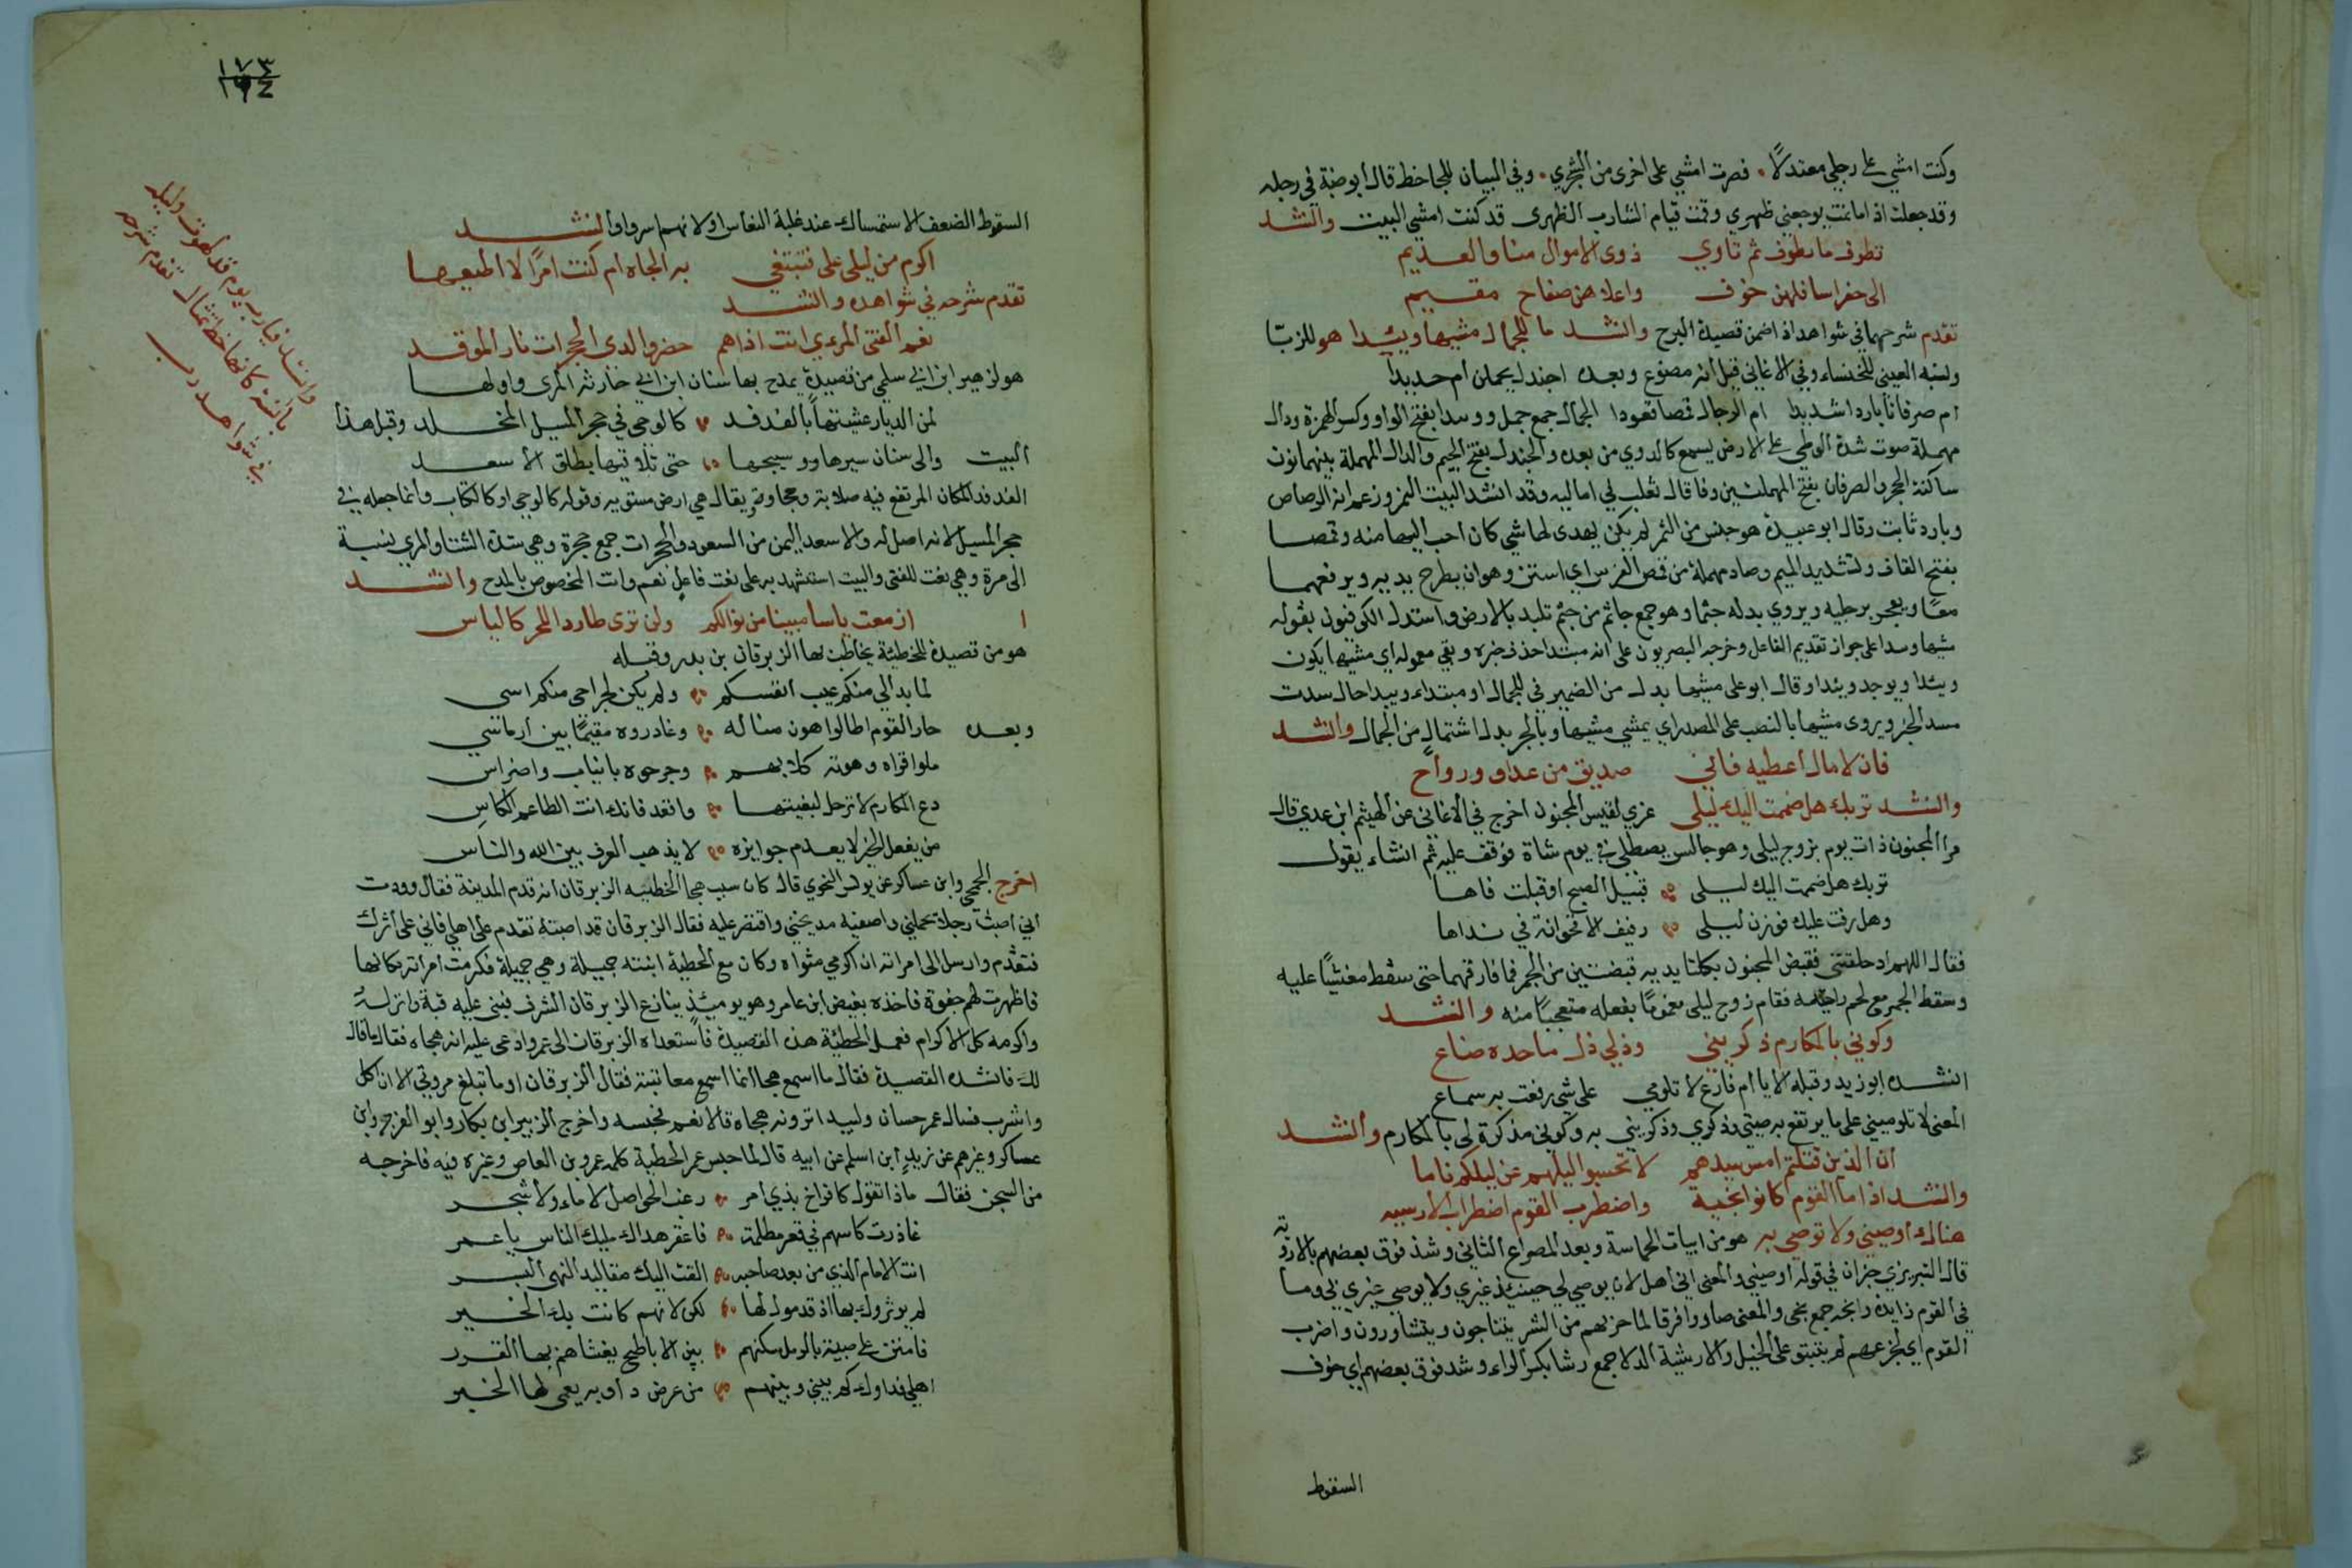 وكنت امشي على رجلي معتدلاً . فصرت امشي على اخرى من الشجري . وفي البيان للجاحظ قال ابو ضبة في رجله
وقد جعلت اذا ما نمت يوجعني ظهري وقمت قيام الشارب الظهرى قد كنت امشي البيت وانشد
تطوف ما نطوف ثم تاوي ذوى الاموال منا والعديم
الى حفر اسافلهن جوف واعلاهن صفاح مقيم
تقدم شرحهما في شواهد اذا ضمن قصيدة البرج وانشد ما للجمال مشيها وئيدا هو للزبا
ونسبه العيني للخنساء وفي الاغاني قيل انه مصنوع وبعده اجندلا يحملن ام حديدا
ام صرفانا باردا شديدا ام الرجال قمصا قعودا الجمال جمع جمل ووئيدا بفتح الواو وكسر الهمزة ودال
مهملة صوت شدة الوطي على الارض يسمع كالدوي من بعده والجندل بفتح الجيم والدال المهملة بينهما نون
ساكنة الحجر والصرفان بفتح المهملتين وفا قال ثعلب في اماليه وقد انشد البيت التمر وزعم انه الرصاص
وبارد ثابت وقال ابو عبيدة هو جنس من التمر لم يكن يهدى لها شي كان احب اليها منه وقمصا
بفتح القاف وتشديد الميم وصاد مهملة من قمص الفرس اي استن وهو ان يطرح يديه ويرفعهما
معا ويعجن برجليه ويروي بدله جثما وهو جمع جاثم من جثم تلبد بالارض واستدل الكوفيون بقوله
مشيها وئيدا على جواز تقديم الفاعل وخرجه البصريون على انه مبتدا حذف خبره وبقي معموله اي مشيها يكون
وئيدا ويوجد وئيدا وقال ابو علي مشيها بدل من الضمير في للجمال او مبتداء وئيدا حال سدت
مسد الخبر ويروى مشيها بالنصب على المصدر اي يمشي مشيها وبالجر بدل اشتمال من الجمال وانشد
فان لا مال اعطيه فاني صديق من غداو ورواح
وانشد تربك هل ضممت اليك ليلى عزي لقيس المجنون اخرج في الاغاني عن الهيثم ابن عدي قال
مر المجنون ذات يوم بزوج ليلى وهو جالس يصطلي في يوم شاة فوقف عليه ثم انشاء يقول
تربك هل ضممت اليك ليلى قبيل الصبح او قبلت فاها
وهل رفت عليك قرون ليلى رفيف الاقحوانة في نداها
فقال اللهم اذ حلفتني فقبض المجنون بكلتا يديه قبضتين من الجمر فما فارقهما حتى سقط مغشيا عليه
وسقط الجمر مع لحم راحتيه فقام زوج ليلى مغموما بفعله متعجبا منه وانشد
وكوني بالمكارم ذكريني ودلي دل ماجدة صناع
انشده ابو زيد وقبله الا يا ام فارع لا تلومي على شي رفعت به سماع
المعنى لا تلوميني على ما يرتفع به صيتي وذكري وذكريني به وكوني مذكرة لي بالمكارم وانشد
ان الذين قتلتم امس سيدهم لا تحسبوا ليلهم عن ليلكم ناما
وانشد اذا ما القوم كانوا انجيه واضطرب القوم اضطراب الارشيه
هناك اوصيني ولا توصي بيه هو من ابيات الحماسة وبعد المصراع الثاني وشد فوق بعضهم بالارويه
قال التبريزي خبر ان في قوله اوصيني والمعنى اني اهل لان يوصي لي حينئذ غيري ولا يوصي غيري بي وما
في القوم زايده وانجيه جمع نجي والمعنى صاروا فرقا لما حزبهم من الشر يتناجون ويتشاورون واضرب
القوم اي لجزعهم لم يثبتو على الخيل والارشية الدلا جمع رشا بكسر الراء وشد فوق بعضهم اي خوف
السقوط
١٧٣
السقوط الضعف الاستمساك عند غلبة النعاس او لانهم اسروا وانشد
اكرم من ليلى على فتبتغي به الجاه ام كنت امرا لا اطيعها
تقدم شرحه في شواهده وانشد
نعم الفتى المري انت اذا هم حضروا لدى الحجرات نار الموقد
هو لزهير ابن ابي سلمى من قصيدة يمدح بها سنان ابن ابي حارثة المري واولها
لمن الديار غشيتها بالفدفد كالوحي في حجر المسيل المخلد وقبل هذا
البيت والى سنان سيرها ووسيجها حتى تلاقيها بطلق الاسعد
الفدفد المكان المرتفع فيه صلابة وحجارة ويقال هي ارض مستويه وقوله كالوحي اي كالكتاب وانما جعله في
حجر المسيل لانه اصل له والاسعد اليمن من السعود والحجرات جمع حجرة وهي شدة الشتا والمري نسبة
الى مرة وهي نعت للفتى والبيت استشهد به على نعت فاعل نعم وانت المخصوص بالمدح وانشد
ازمعت ياسا مبينا من نوالكم ولن ترى طاردا للحر كالياس
هو من قصيدة للحطيئة يخاطب بها الزبرقان بن بدر وقبله
لما بدا لي منكم عيب انفسكم ولم يكن لجراحي منكم اسي
وبعده جار لقوم اطالوا هون منزله وغادروه مقيما بين ارماس
ملوا قراه وهرته كلابهم وجرحوه بانياب واضراس
دع المكارم لا ترحل لبغيتها واقعد فانك انت الطاعم الكاس
من يفعل الخير لا يعدم جوايزه لا يذهب العرف بين الله والناس
اخرج الجمحي وابن عساكر عن يونس النحوي قال كان سبب هجا الحطئيه الزبرقان انه قدم المدينة فقال وددت
اني اصبت رجلا يحملني واصفيه مديحتي واقتصر عليه فقال الزبرقان قد اصبته تقدم على اهلي فاني على اثرك
فتقدم وارسل الى امراته ان اكرمي مثواه وكان مع الحطية ابنته جميلة وهي جميلة فكرهت امراته مكانها
فاظهرت لهم جفوة فاخذه بغيض ابن عامر وهو يومئذ ينازع الزبرقان الشرف فبنى عليه قبة وانزله
واكرمه كل الاكرام فعمل الحطئة هذه القصيدة فاستعداه الزبرقان الى عمر وادعى عليه انه هجاه فقال ما قال
لك فانشده القصيدة فقال ما اسمع هجا انما اسمع معاتبة فقال الزبرقان او ما تبلغ مروتي الا ان اكل
واشرب فسال عمر حسان ولبيد اترونه هجاه قالا نعم فحبسه واخرج الزبير ابن بكار وابو الفرج وابن
عساكر وغيرهم عن زيد ابن اسلم عن ابيه قال لما حبس عمر الحطية كلمه عمرو بن العاص وغيره فيه فاخرجه
من السجن فقال ماذا تقول لافراخ بذي امر زغب الحواصل لا ماء ولا شجر
غادرت كاسبهم في قعر مظلمة فاغفر هداك مليك الناس يا عمر
انت الامام الذي من بعد صاحبه القت اليك مقاليد النهى البشر
لم يوثروك بها اذ قدموك لها لكن لانفسهم كانت بك الخير
فامنن على صبية بالرمل مسكنهم بين الاباطح يغشاهم بها القرر
اهلي فداوك كم بيني وبينهم من عرض داوية يعمى لها الخبر
وانشد فيا رب يوم قد لهوت وليلة
بانسة كانها خط تمثال تقدم شرحه
في شواهد رب